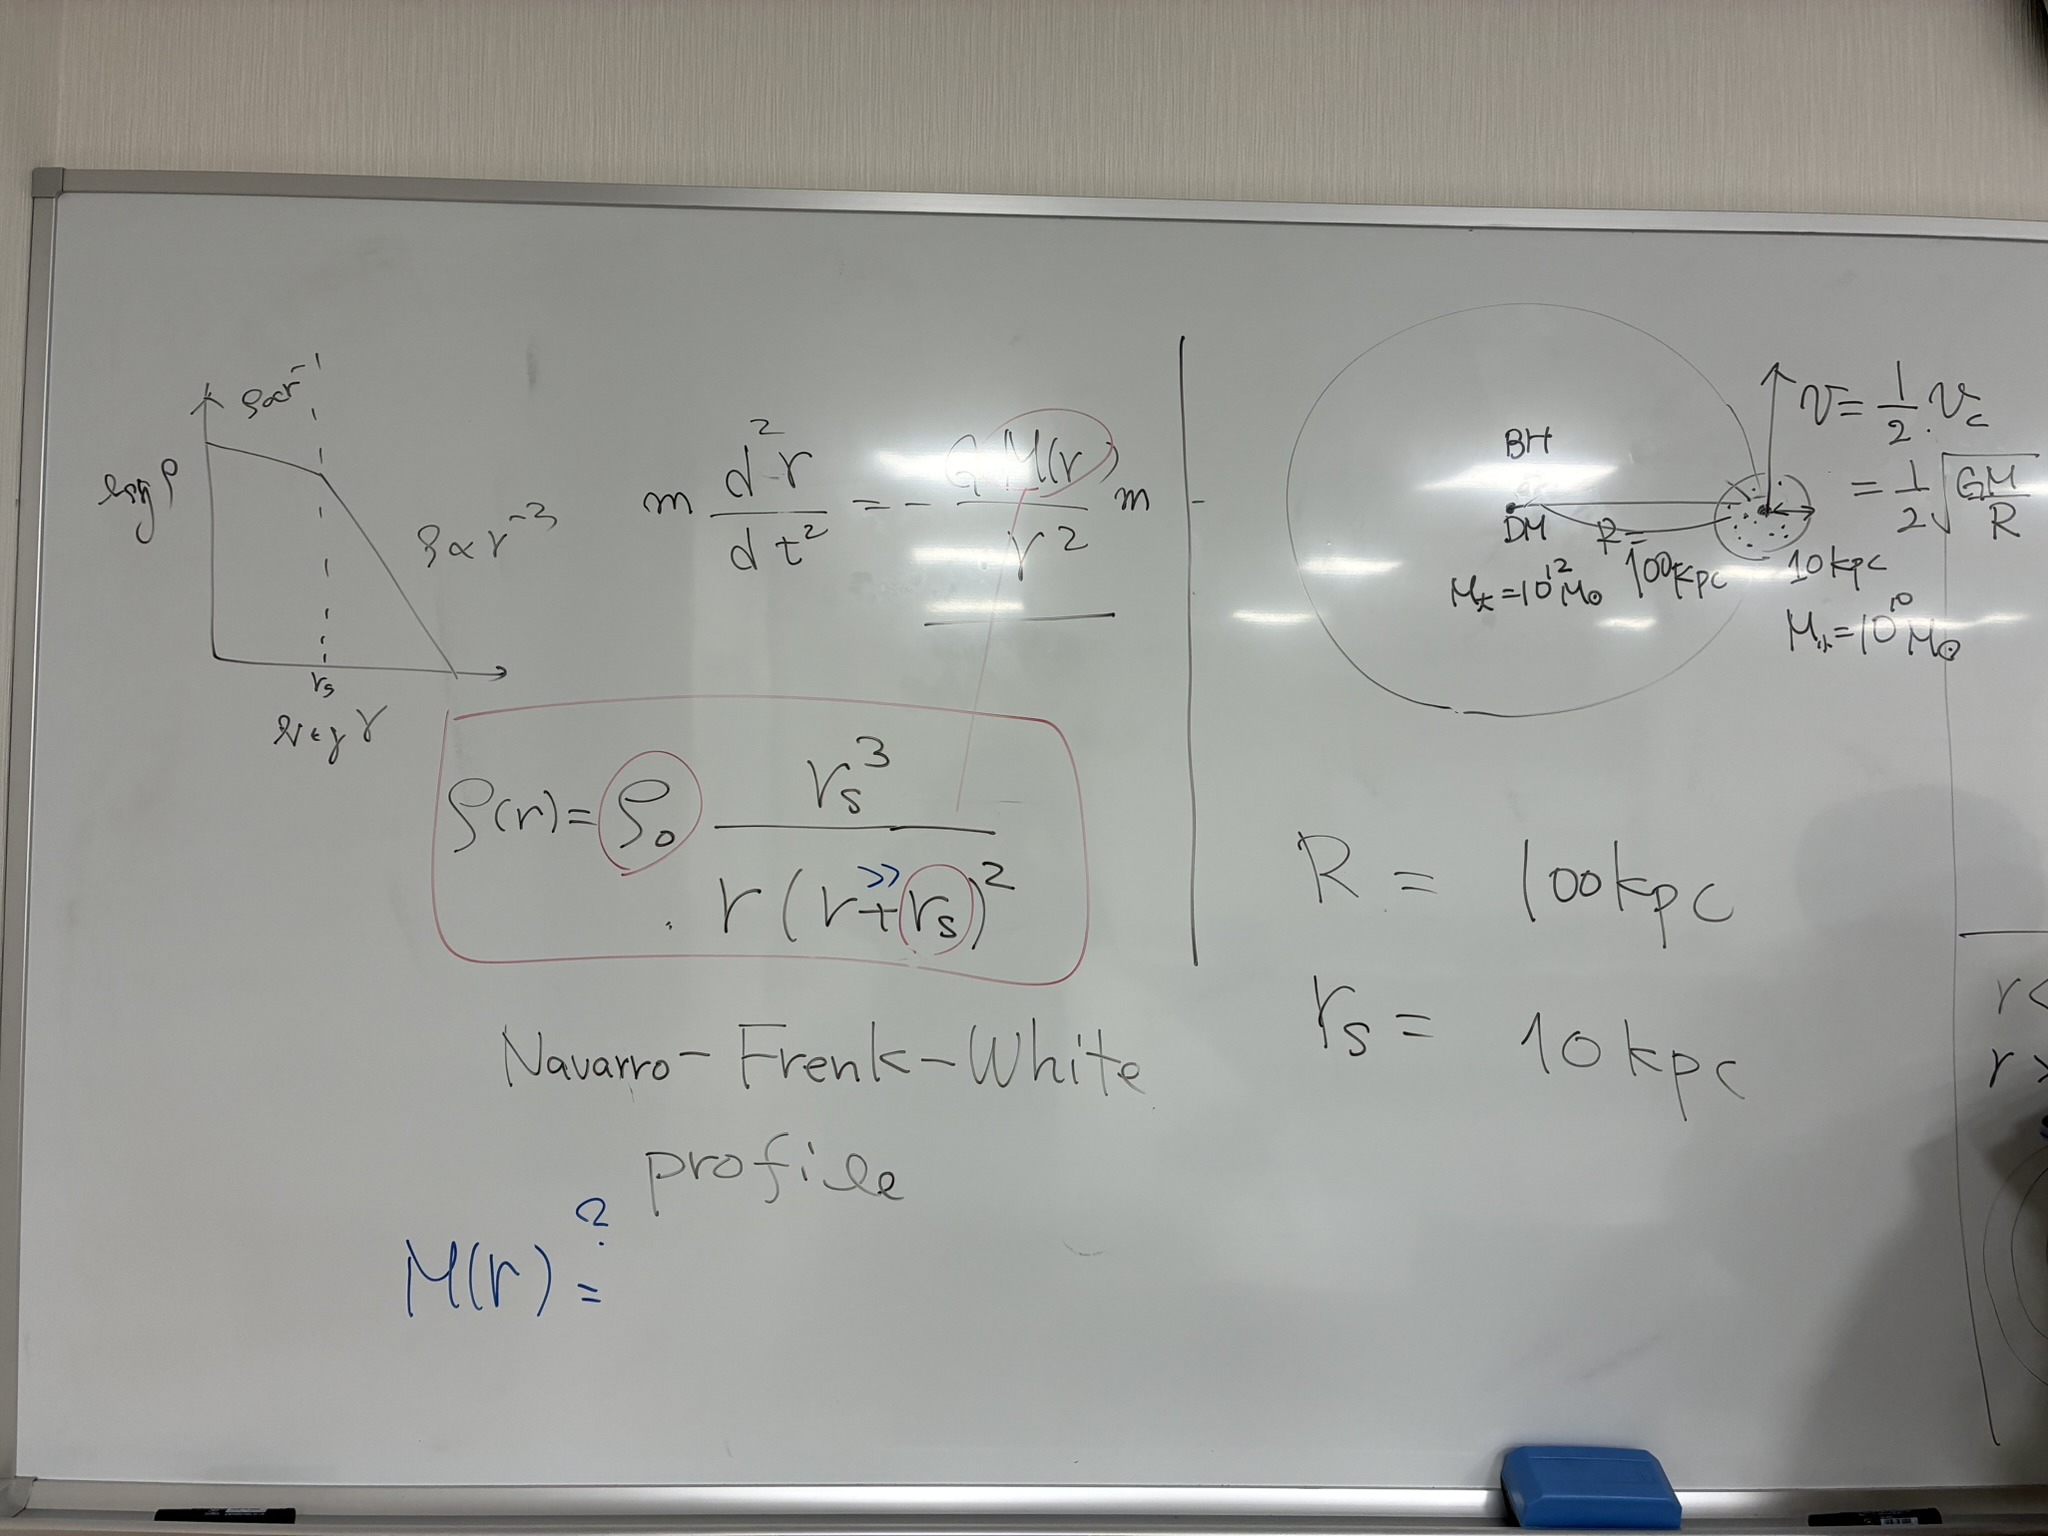 ρ∝r⁻¹
log ρ
ρ∝r⁻³
r_s
log r
m d²r/dt² = - G M(r)/r² m
ρ(r) = ρ₀ r_s³ / r(r + r_s)²
≫
Navarro-Frenk-White
profile
M(r) =
?
BH
DM
R =
100kpc
M_*=10¹²M⊙
v = 1/2 v_c
= 1/2 √(GM/R)
10kpc
M_*=10¹⁰M⊙
R = 100kpc
r_s = 10kpc
r<
r>